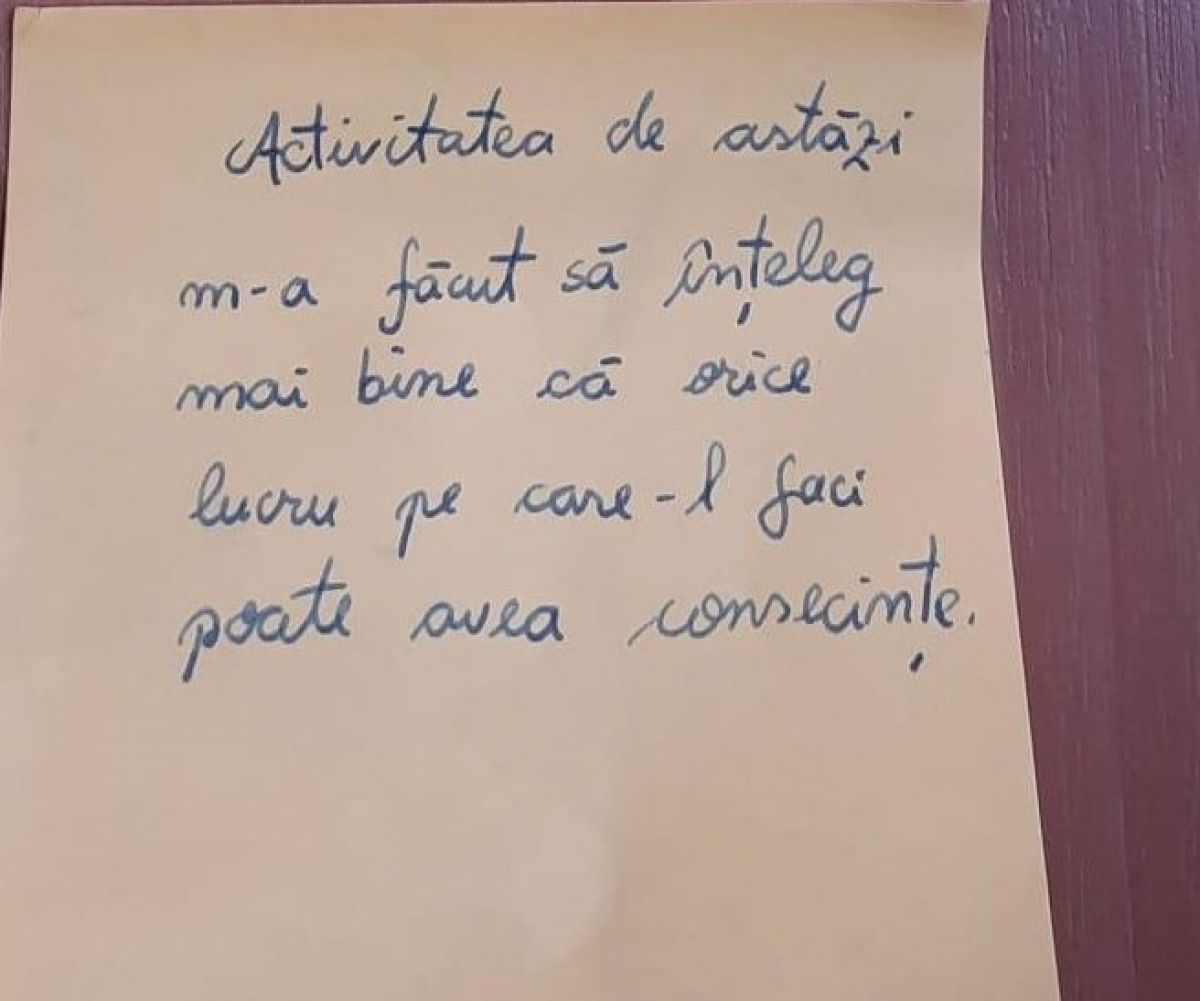 Activitatea de astăzi
m-a făcut să înțeleg
mai bine că orice
lucru pe care-l faci
poate avea consecințe.